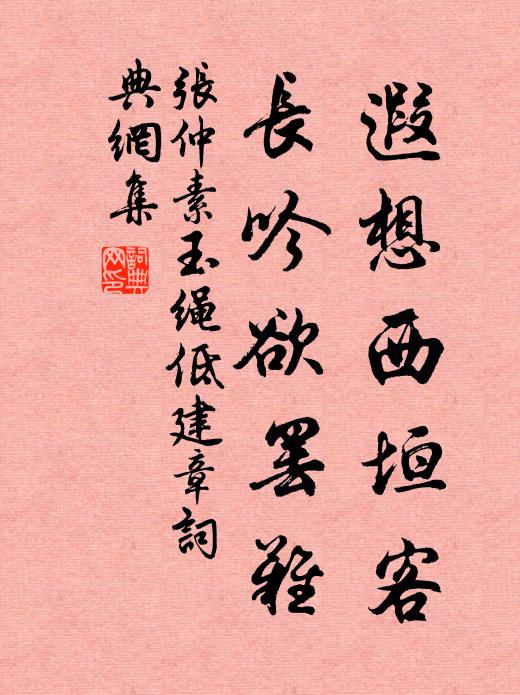 遐想西垣客
長吟欲罷難
張仲素玉繩低建章詞
典網集
詞典網印